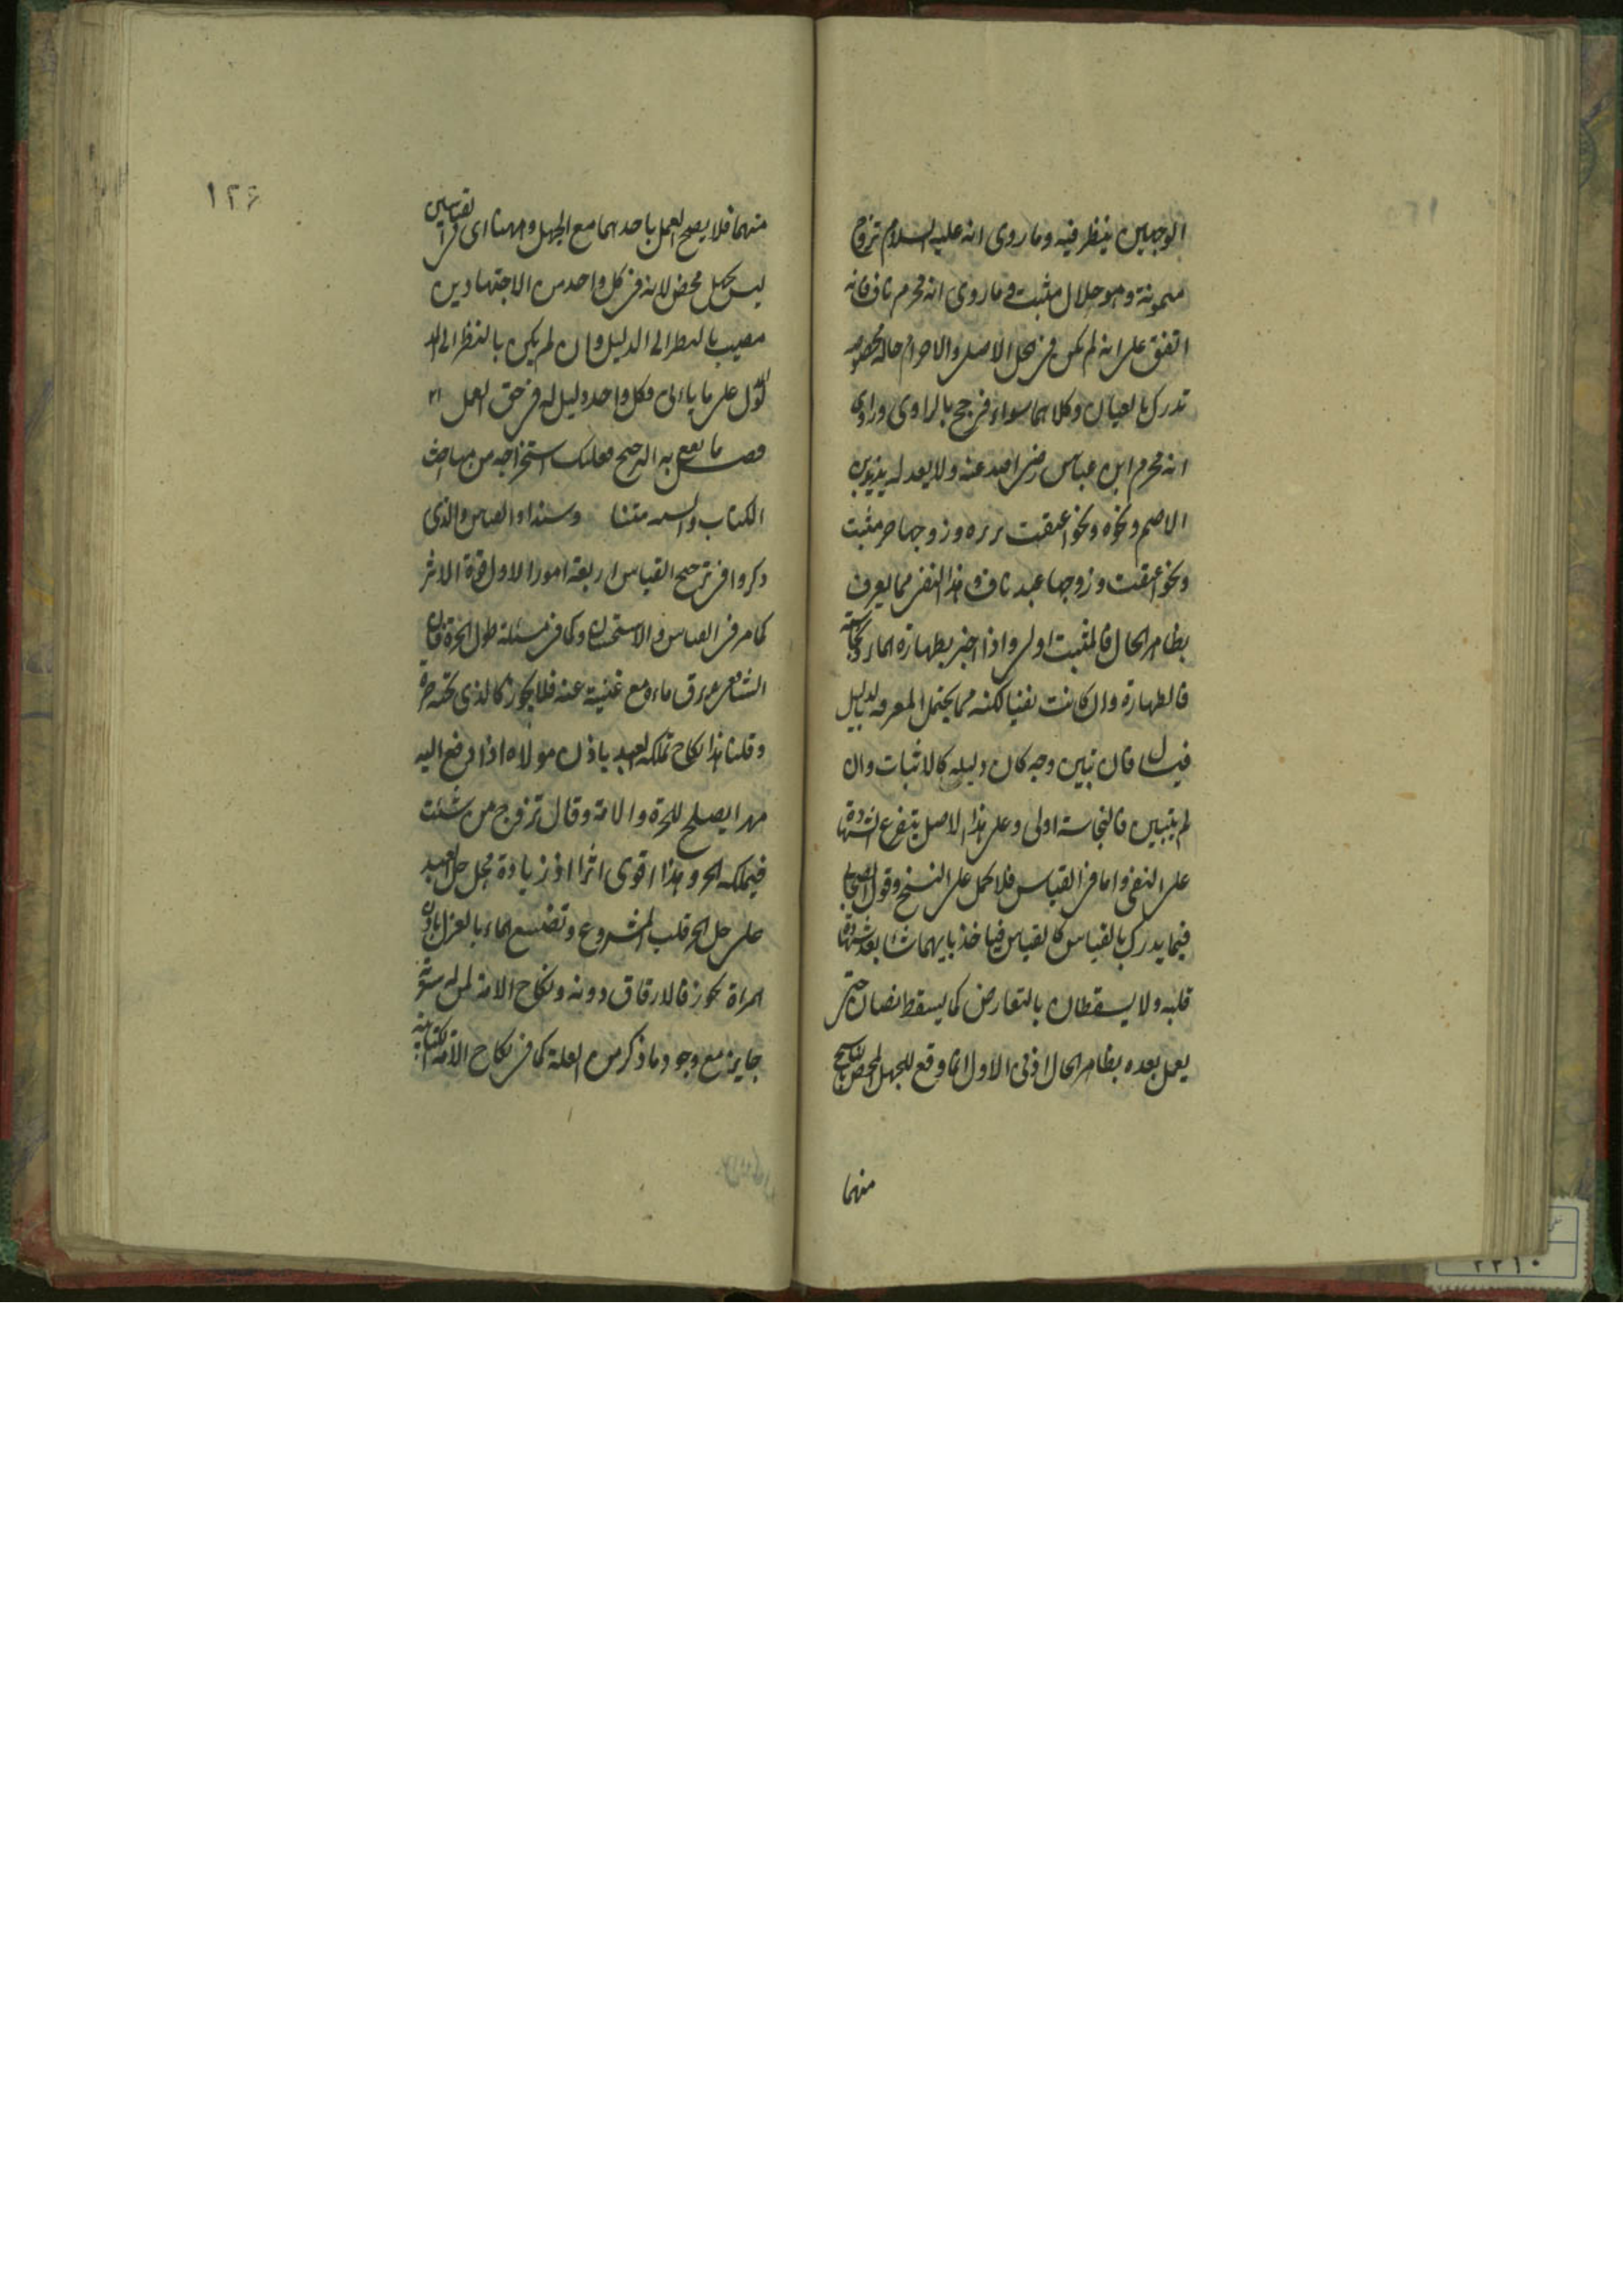 الوجهين ينظر فيه وما روى انه عليه السلام تزوج
ميمونة وهو حلال مثبت وما روى انه محرم ناف فانه
اتفق على انه لم يكن فى الحل الاصلى والاحرام حالة مخصوصة
تدرك بالعيان وكلاهما سواء فرجح بالراوى وراوى
انه محرم ابن عباس رضى الله عنه ولا يعدله يزيد بن
الاصم ونحوه ونحو اعتقت بريرة وزوجها حر مثبت
ونحو اعتقت وزوجها عبد ناف وهذا النفى مما يعرف
بظاهر الحال فالمثبت اولى واذا اخبر بطهارة الماء ونجاسته
فالطهارة وان كانت نفيا لكنه مما يحتمل المعرفة بالدليل
فيسأل فان تبين وجه كان دليله كالاثبات وان
لم يتبين فالنجاسة اولى وعلى هذا الاصل يتفرع الشهادة
على النفى واما فى القياس فلا يحمل على النسخ وقول الصحابى
فيما يدرك بالقياس كالقياس فياخذ بايهما شاء بعد شهادة
قلبه ولا يسقطان بالتعارض كما يسقط نصان حتى
يعمل بعده بظاهر الحال اذ فى الاول انما وقع للجهل المحض بالناسخ
منهما
١٢٦
منهما فلا يصح العمل باحدهما مع الجهل وههنا اى فى القياسين
ليس بجهل محض لانه فى كل واحد من الاجتهادين
مصيب بالنظر الى الدليل وان لم يكن بالنظر الى المد
لول على ما ياتى وكل واحد دليل له فى حق العمل
فصل ما يقع به الترجيح فعليك استخراجه من مباحث
الكتاب والسنة متنا وسندا والقياس والذى
ذكروا فى ترجيح القياس اربعة امور الاول قوة الاثر
كما مر فى القياس والاستحسان وكما فى مسئلة طول الحرة قال
الشافعى يرق ماءه مع غنية عنه فلا يجوز كالذى تحته حرة
وقلنا هذا نكاح تملكه العبد باذن مولاه اذا دفع اليه
مهرا يصلح للحرة والامة وقال تزوج من شئت
فيملكه الحر وهذا اقوى اثرا اذ زيادة محل حل العبد
على حل الحر قلب المشروع وتضييع الماء بالعزل باذن
المراة يجوز فالارقاق دونه ونكاح الامة لمن له سرية
جايز مع وجود ما ذكر من العلة كما فى نكاح الامة الكتابية